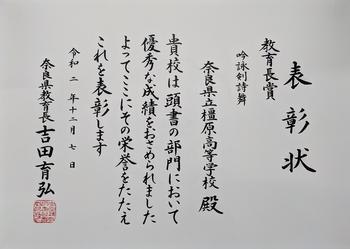 表彰状
教育長賞
吟詠剣詩舞
奈良県立橿原高等学校 殿
貴校は頭書の部門において
優秀な成績をおさめられました
よってここにその栄誉をたたえ
これを表彰します
令和二年十二月七日
奈良県教育長 吉田育弘